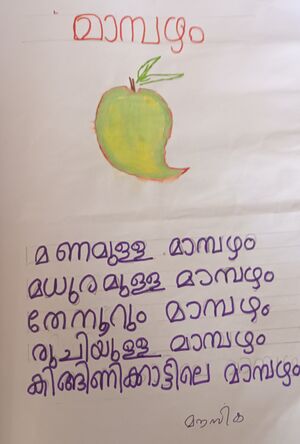 മാമ്പഴം
മണമുള്ള മാമ്പഴം
മധുരമുള്ള മാമ്പഴം
തേനൂറും മാമ്പഴം
രുചിയുള്ള മാമ്പഴം
കിങ്ങിണിക്കാട്ടിലെ മാമ്പഴം
മൗസിക